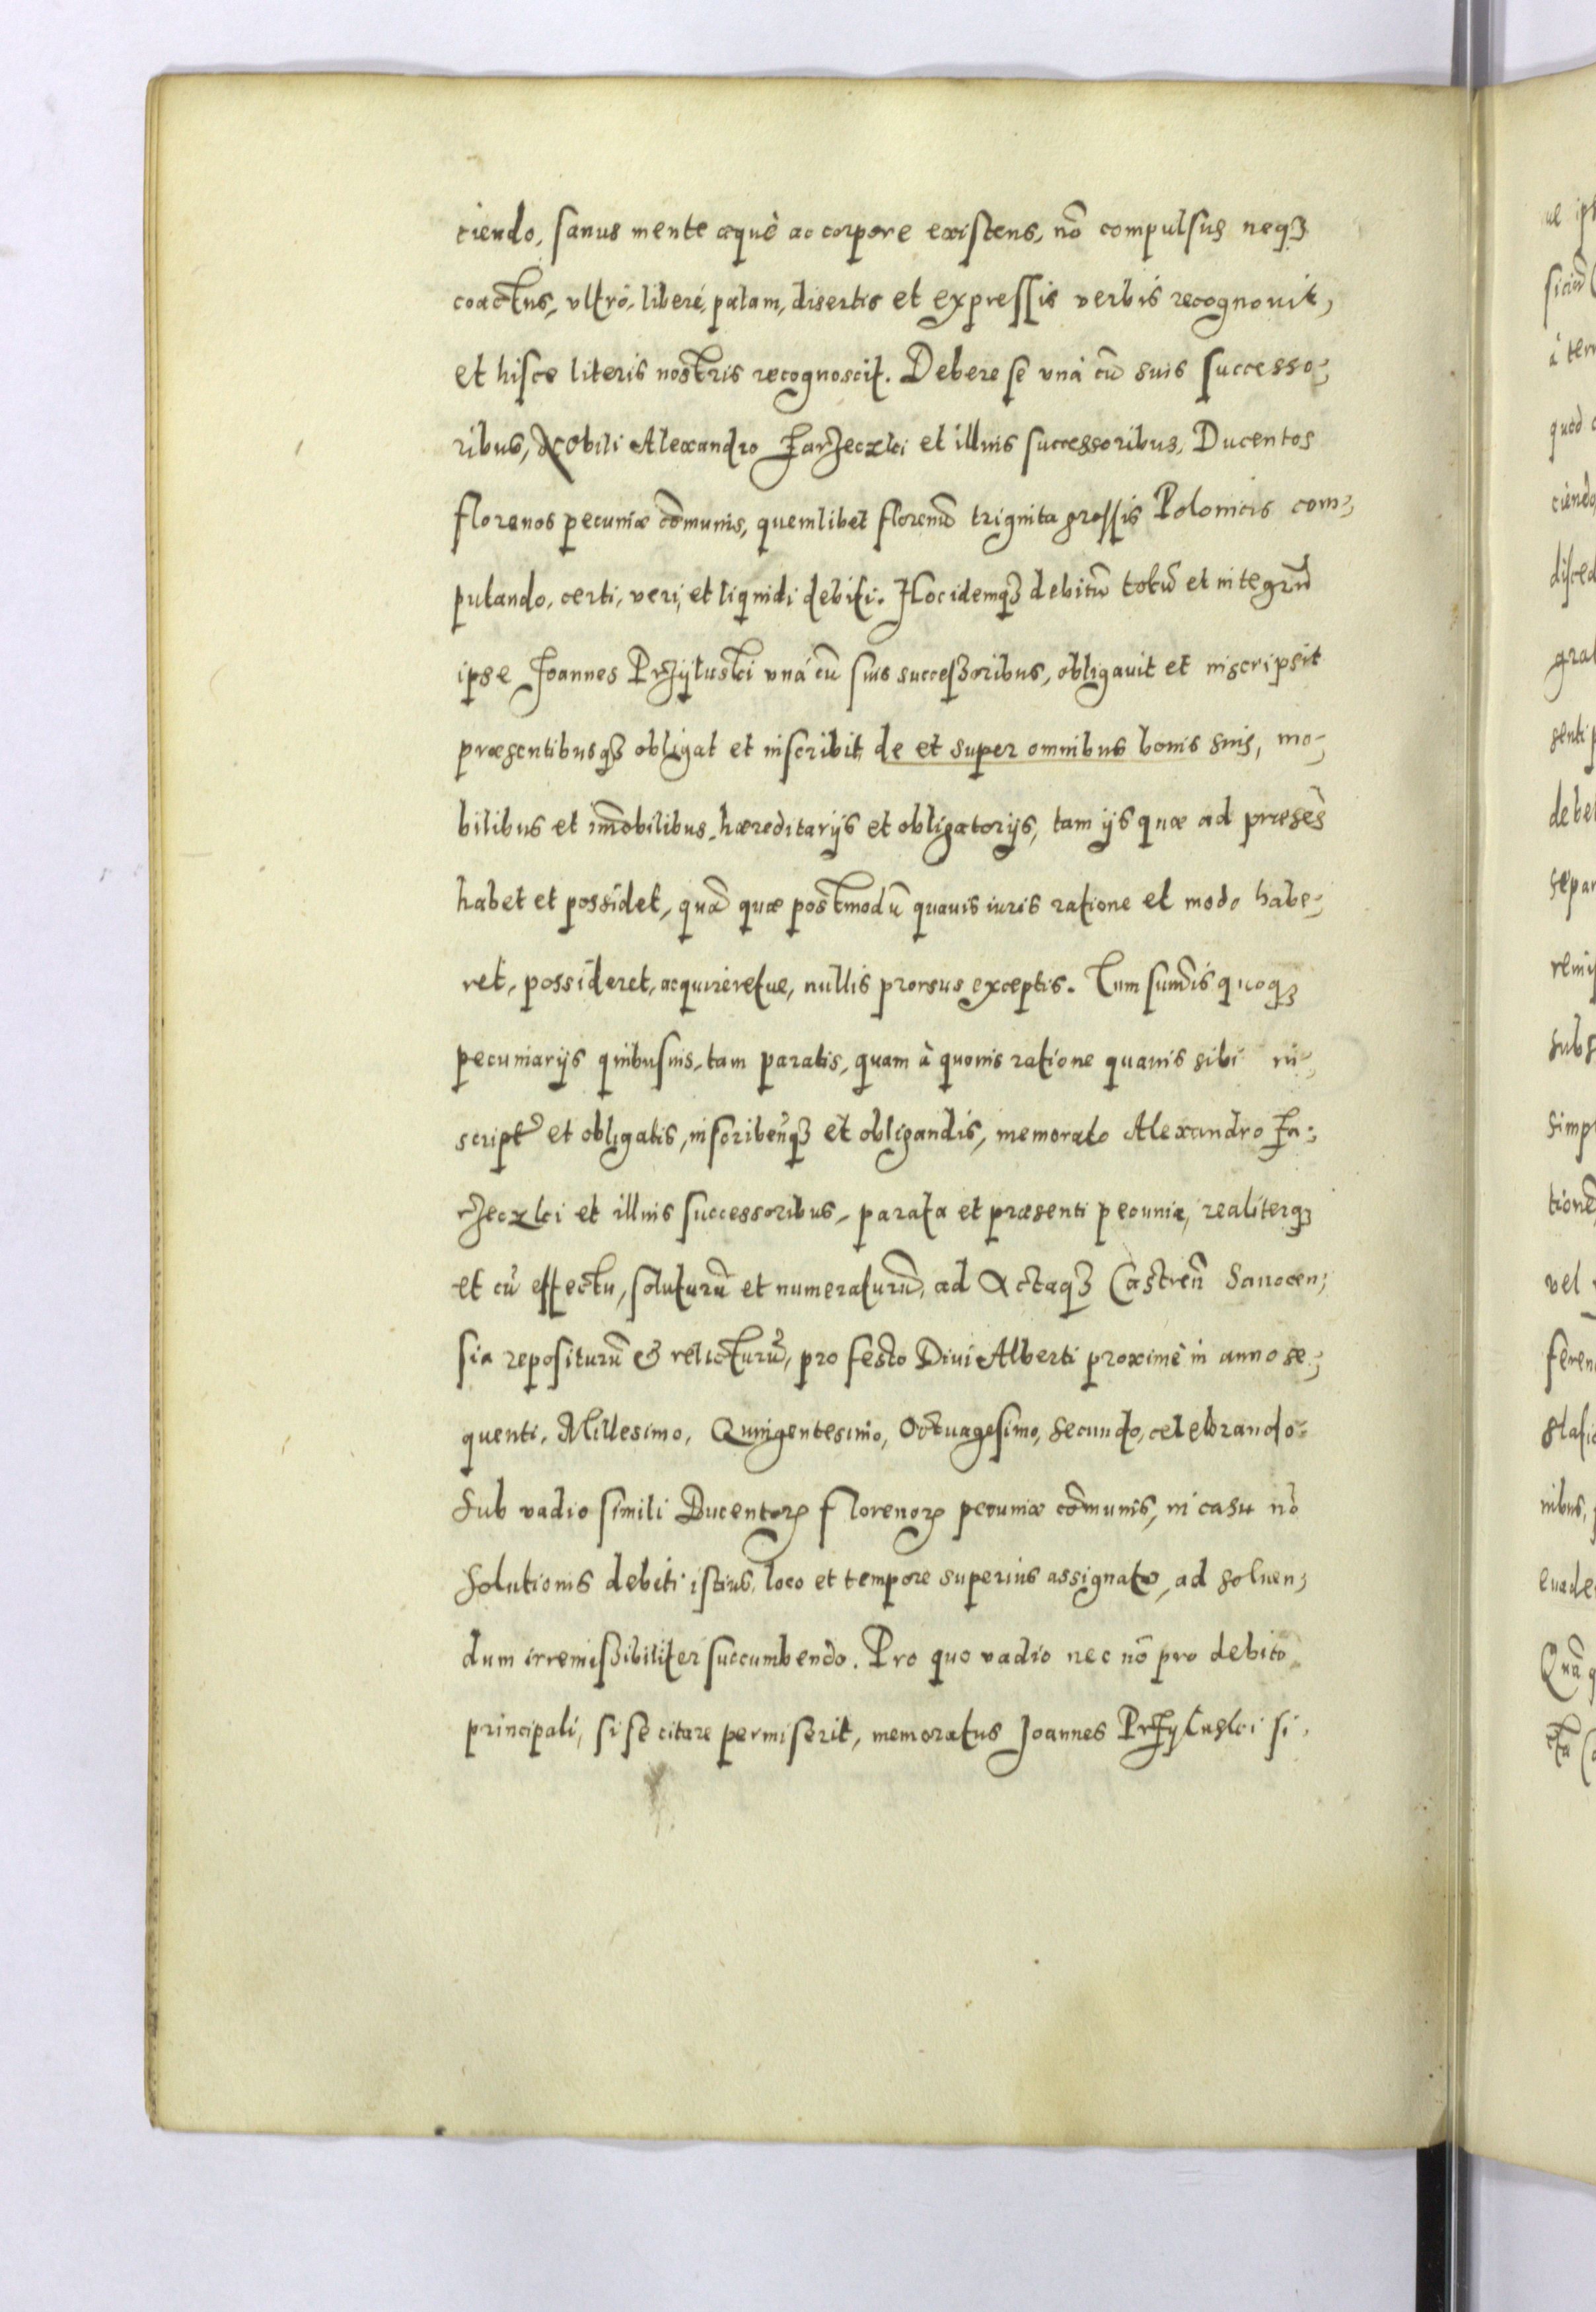 ciendo, sanus mente æquè ac corpore existens, nō compulsus neqꝫ
coactus, vltrò, liberè, palam, disertis et expressis verbis recognouit,
et hisce literis nostris recognoscit. Debere se vnà cū suis successo-
ribus, Nobili Alexandro Zarzeczki et illius successoribus, Ducentos
florenos pecuniæ cōmunis, quemlibet florenū triginta grossis Polonicis com-
putando, certi, veri, et liquidi debiti. Hoc idemqꝫ debitū totū et integrū
ipse Joannes Przyluski vnà cū suis successoribus, obligauit et inscripsit
præsentibusqꝫ obligat et inscribit, de et super omnibus bonis suis, mo-
bilibus et im̄obilibus, hæreditarijs et obligatorijs, tam ijs quæ ad præsēs
habet et possidet, quā quæ postmodū quauis iuris ratione et modo habe-
ret, possideret, acquireretue, nullis prorsus exceptis. Tum sum̄is quoqꝫ
pecuniarijs quibusuis, tam paratis, quam à quouis ratione quauis sibi in-
script⁹ et obligatis, inscribēdqꝫ et obligandis, memorato Alexandro Za-
rzeczki et illius successoribus, parata et præsenti pecunia, realiterqꝫ
et cū effectu, soluturū et numeraturū, ad Actaqꝫ Castreñ Sanocen-
sia repositurū & relicturū, pro festo Diui Alberti proximè in anno se-
quenti, Millesimo, Quingentesimo, Octuagesimo, secundo, celebrando.
Sub vadio simili Ducentorꝝ florenorꝝ pecuniæ cōmunis, in casu nō
solutionis debiti istius, loco et tempore superius assignato, ad soluen-
dum irremissibiliter succumbendo. Pro quo vadio nec nō pro debito
principali, si se citare permiserit, memoratus Joannes Przyluski si-